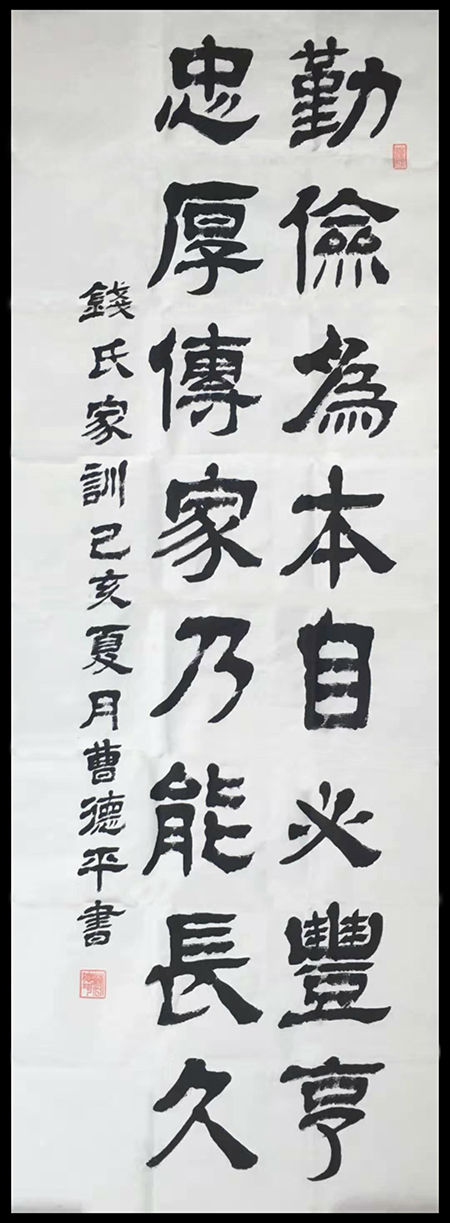 勤儉為本自必豐亨
忠厚傳家乃能長久
錢氏家訓己亥夏月曹德平書